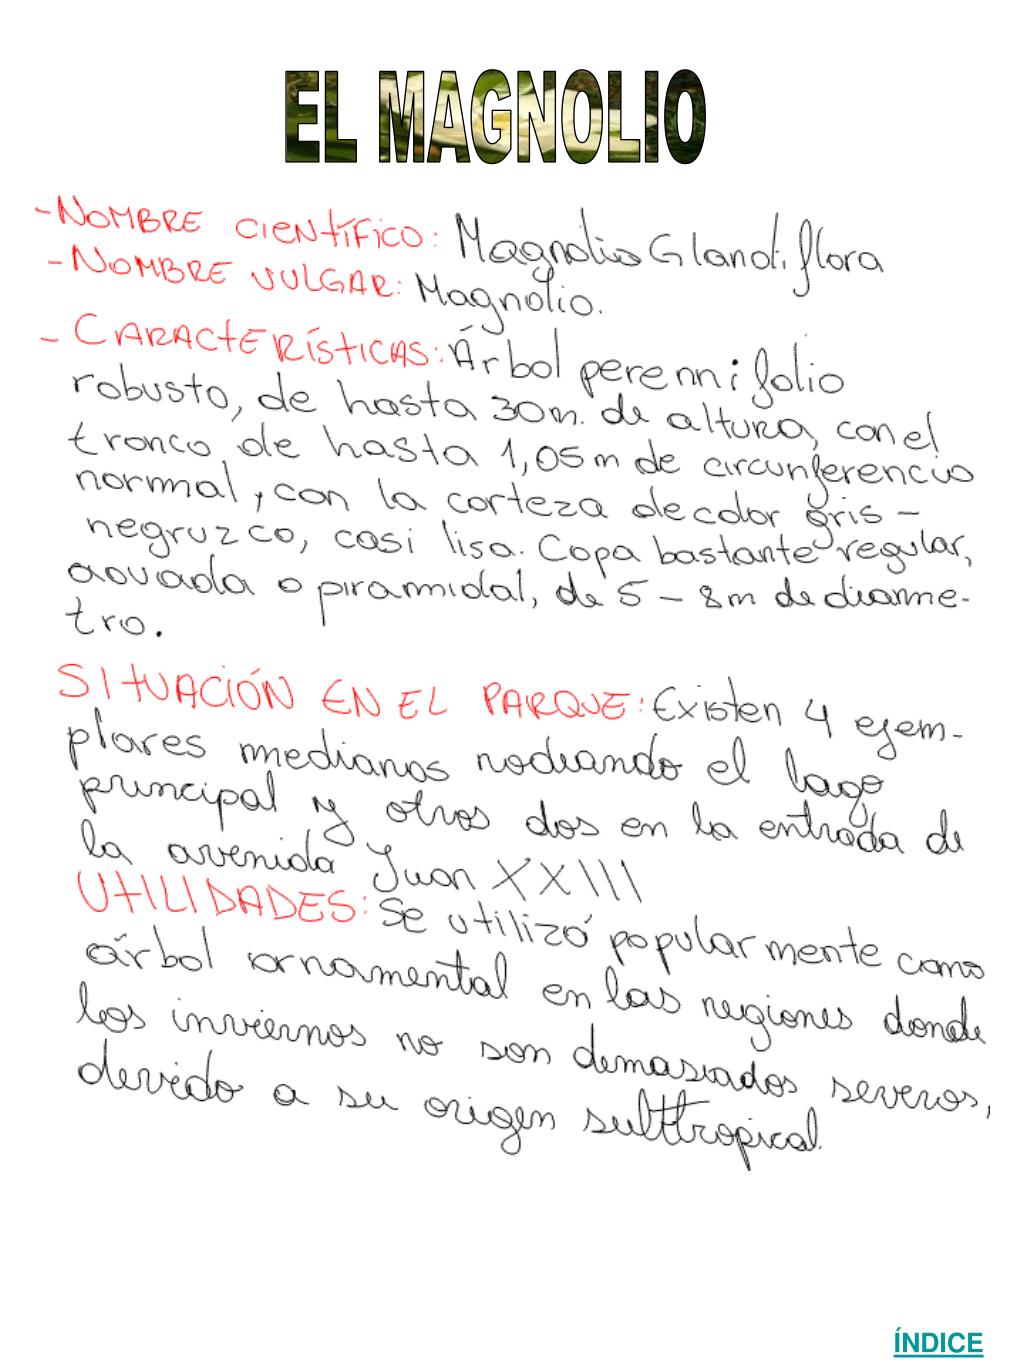 EL MAGNOLIO
-NOMBRE CIENTÍFICO: Magnolio Glandiflora
-NOMBRE VULGAR: Magnolio.
- CARACTERÍSTICAS: Árbol perennifolio
robusto, de hasta 30m. de altura, con el
tronco de hasta 1,05m de circunferencia
normal, con la corteza de color gris -
negruzco, casi lisa. Copa bastante regular,
aovada o piramidal, de 5 - 8m de diáme-
tro.
SITUACIÓN EN EL PARQUE: Existen 4 ejem-
plares medianos rodeando el lago
principal y otros dos en la entrada de
la avenida Juan XXIII
UTILIDADES: Se utilizó popularmente como
árbol ornamental en las regiones donde
los inviernos no son demasiados severos,
devido a su origen subtropical.
ÍNDICE